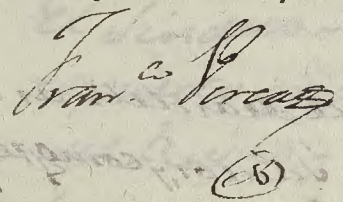 Fran.co Perea